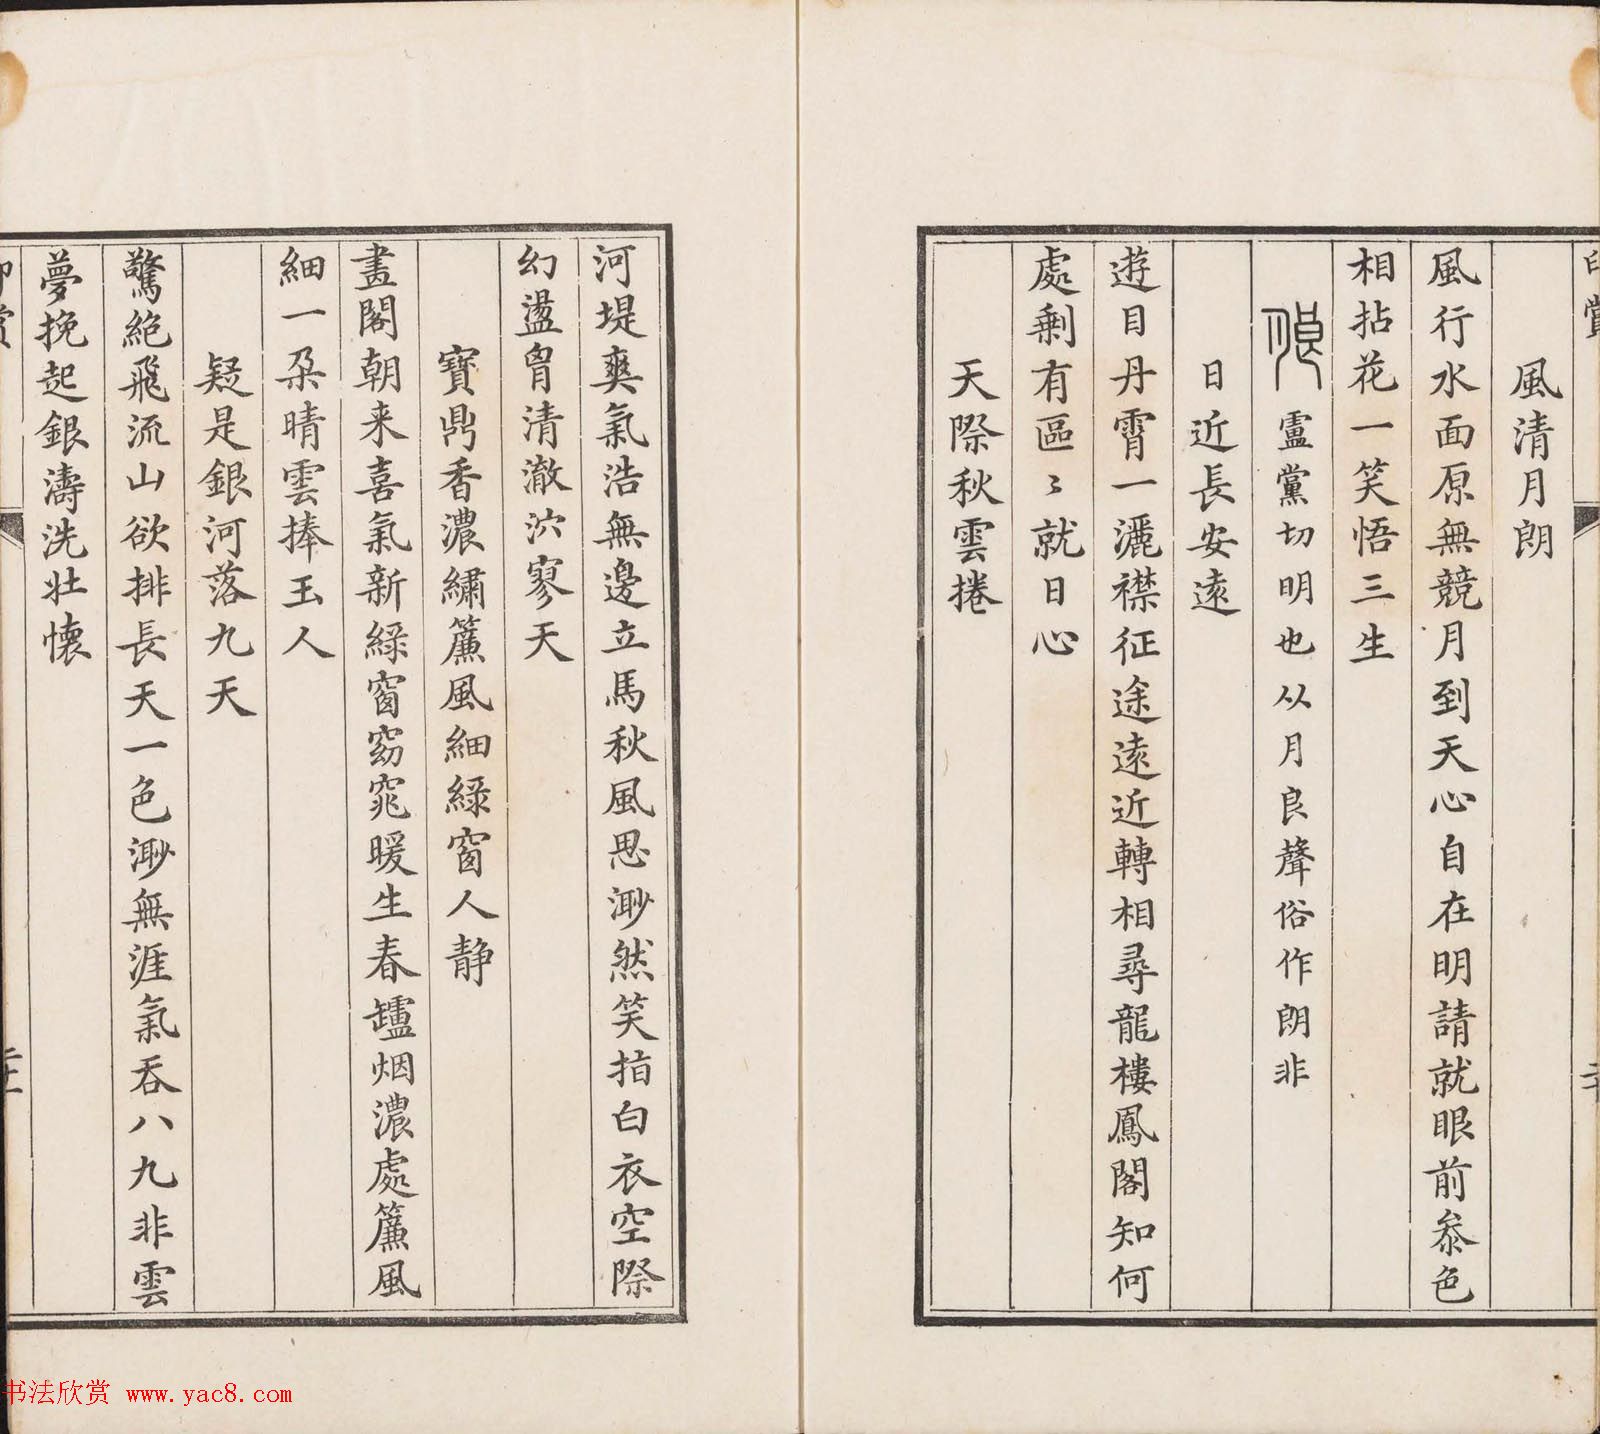 風清月朗
風行水面原無競月到天心自在明請就眼前叅色
相拈花一笑悟三生
盧黨切明也从月良聲俗作朗非
日近長安遠
遊目丹霄一灑襟征途遠近轉相尋龍樓鳳閣知何
處剩有區〻就日心
天際秋雲捲
河堤爽氣浩無邊立馬秋風思渺然笑指白衣空際
幻盪胷清澈泬寥天
寶鼎香濃繡簾風細綠窗人靜
畫閣朝来喜氣新綠窗窈窕暖生春罏烟濃處簾風
細一朶晴雲捧玉人
疑是銀河落九天
驚絕飛流山欲排長天一色渺無涯氣吞八九非雲
夢挽起銀濤洗壯懷
书法欣赏 www.yac8.com